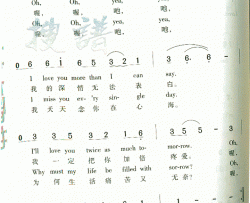 Oh, yea, Oh,
喔, 吔, 喔,
Oh, yea, Oh,
喔, 吔, 喔,
搜譜
0 6 6 i 6 5 3 2 1 3· 6·
I love you more than I can say.
我 的 深 情 无 法 表 白。
I miss you ev'ry single day.
我 天 天 念 你 在 心 海。
0 3 3 5 3 3 2 1
I'll love you twice as much tomorrow? Oh,
我 一 定 把 你 加 倍 疼 爱。 喔,
Why must my life be filled with sorrow? Oh,
为 何 生 活 痛 苦 又 无 奈? 喔,